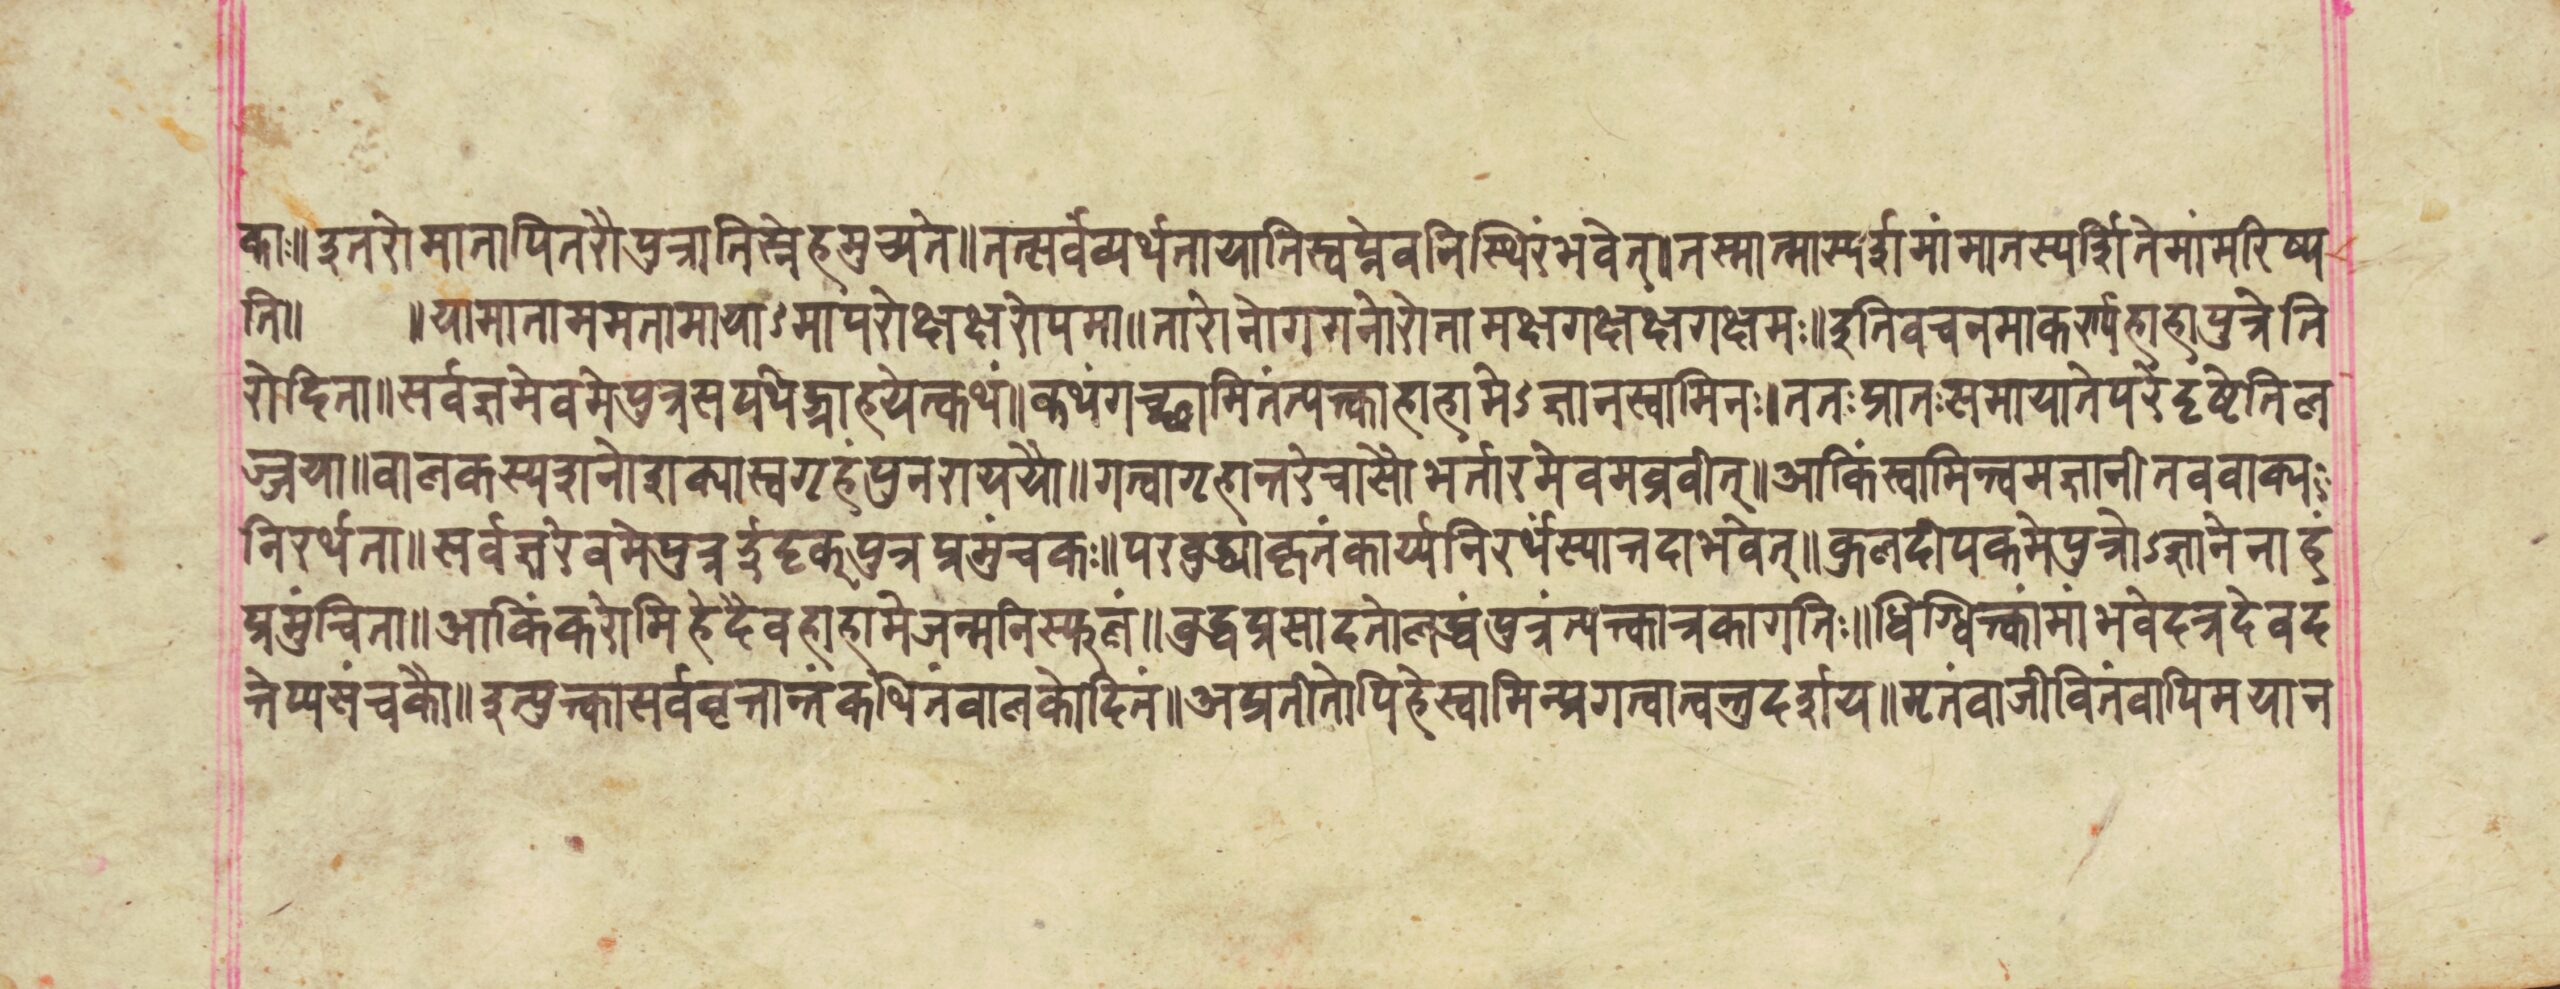 काः॥इतरोमातापितरौपुत्रातिस्नेहमुच्यते॥तत्सर्वंव्यर्थतायातिस्वप्नेवनिस्थिरंभवेत्।तस्मात्मास्पर्शामांमातस्पर्शितेमांमरिष्य
ति॥ ॥यामातामममतामायाऽमांपरोक्षक्षरोपमा॥तारोनोगगनोरोतामक्षगक्षक्षगक्षमः॥इतिवचनमाकर्ण्यहाहापुत्रेति
रोदिता॥सर्वज्ञमेवमेपुत्रसपथेद्ग्राहयेत्कथं॥कथंगच्छामितंत्यक्त्वाहाहामेऽज्ञानस्वामिनः।ततःप्रातःसमायातेपरैदृष्टेतिल
ज्जया॥बालकस्यशनोशक्यास्वगृहंपुनराययौ॥गत्वागृहान्तरेचासौभर्तारमेवमब्रवीत्॥आकिंस्वामिन्त्वमज्ञानीतववाक्यः
निरर्थता॥सर्वज्ञरेवमेपुत्रर्इदृक्पुत्रप्रमुंचकः॥परबुद्ध्याकृतंकार्य्यनिरर्थंस्यात्तदाभवेत्॥कुलदीपकमेपुत्रोऽज्ञानेनाहं
प्रमुंचिता॥आकिंकरोमिहेदैवहाहामेजन्मनिस्फलं॥बुद्धप्रसादतोलब्धंपुत्रंत्यक्त्वात्रकागतिः॥धिग्धिक्त्वांमांभवेदत्रदेवद
त्तेप्यसंचकौ॥इत्युक्त्वासर्ववृत्तान्तंकथितंबालकोदितं॥अप्रतीतोपिहेस्वामिन्प्रगत्वात्वन्तुदर्शय॥मृतंवाजीवितंवापिमयान